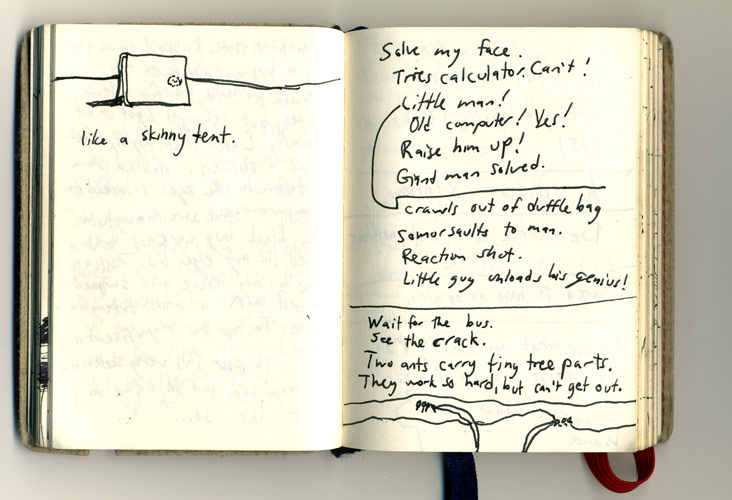 like a skinny tent.
Solve my face.
Tries calculator. Can't!
Little man!
Old computer! Yes!
Raise him up!
Grand man solved.
crawls out of duffle bag
somorsaults to man.
Reaction shot.
Little guy unloads his genius!
Wait for the bus.
see the crack.
Two ants carry tiny tree parts.
They work so hard, but can't get out.